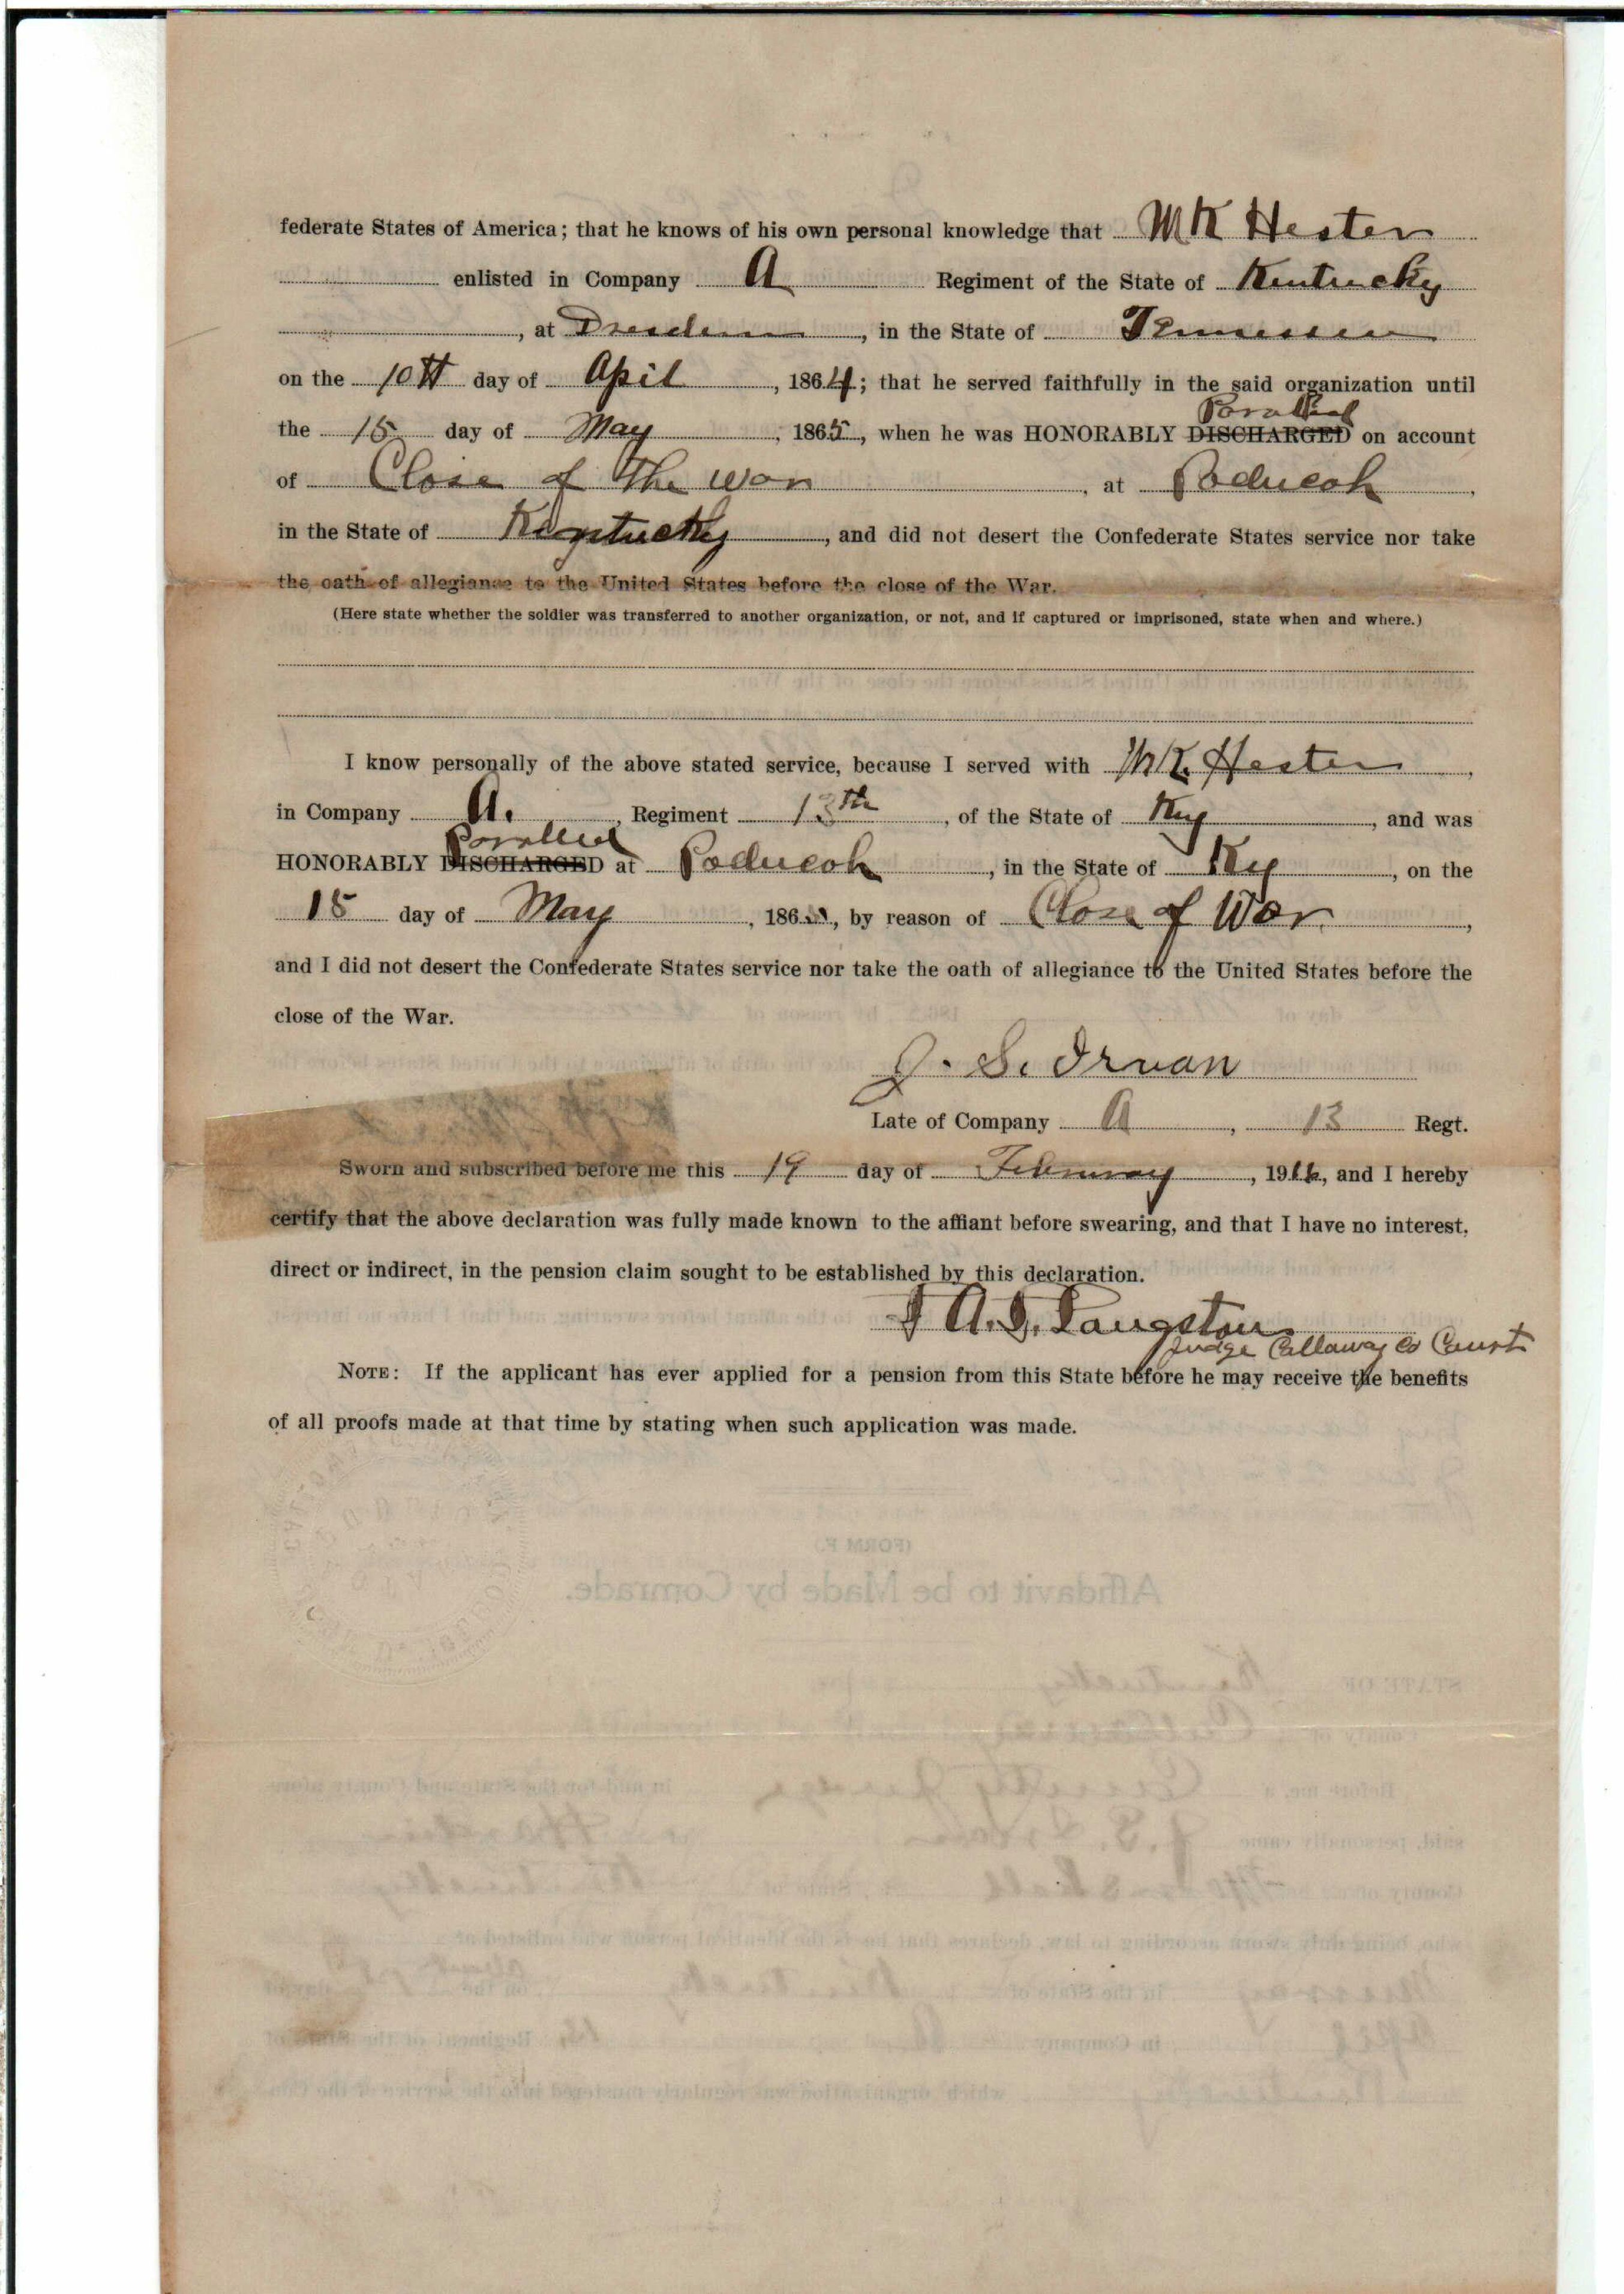 federate States of America; that he knows of his own personal knowledge that M K Hester
enlisted in Company A Regiment of the State of Kentucky
, at Dresden, in the State of Tennessee
on the 10th day of April, 1864; that he served faithfully in the said organization until
Parolled
the 15 day of May, 1865, when he was HONORABLY DISCHARGED on account
of Close of the war, at Paducah,
in the State of Kentucky, and did not desert the Confederate States service nor take
the oath of allegiance to the United States before the close of the War.
(Here state whether the soldier was transferred to another organization, or not, and if captured or imprisoned, state when and where.)
I know personally of the above stated service, because I served with M K. Hester,
in Company A., Regiment 13th, of the State of Ky, and was
Parolled
HONORABLY DISCHARGED at Paducah, in the State of Ky, on the
15 day of May, 186, by reason of Close of War,
and I did not desert the Confederate States service nor take the oath of allegiance to the United States before the
close of the War.
J. S. Irvan
Late of Company A, 13 Regt.
Sworn and subscribed before me this 19 day of February, 19, and I hereby
certify that the above declaration was fully made known to the affiant before swearing, and that I have no interest,
direct or indirect, in the pension claim sought to be established by this declaration.
Langston
Judge Callaway Co Court
NOTE: If the applicant has ever applied for a pension from this State before he may receive the benefits
of all proofs made at that time by stating when such application was made.
(FORM F.)
Affidavit to be Made by Comrade.